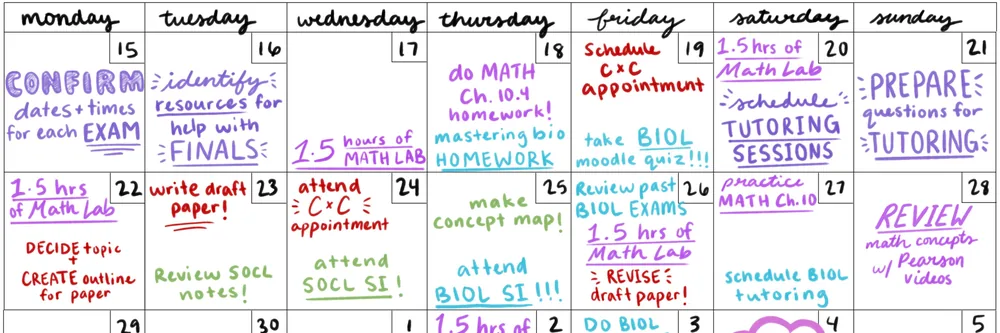 monday
tuesday
wednesday
thursday
friday
saturday
sunday
15
CONFIRM
dates + times
for each EXAM
16
identify
resources for
help with
FINALS
17
1.5 hours of
MATH LAB
18
do MATH
Ch. 10.4
homework!
mastering bio
HOMEWORK
19
Schedule
CxC
appointment
take BIOL
moodle quiz!!!
20
1.5 hrs of
Math Lab
schedule
TUTORING
SESSIONS
21
PREPARE
questions for
TUTORING
22
1.5 hrs
of Math Lab
DECIDE topic
+
CREATE outline
for paper
23
write draft
paper!
Review SOCL
notes!
24
attend
CxC
appointment
attend
SOCL SI!
25
make
concept map!
attend
BIOL SI!!!
26
Review past
BIOL EXAMS
1.5 hrs of
Math Lab
REVISE
draft paper!
27
practice
MATH Ch.10
schedule BIOL
tutoring
28
REVIEW
math concepts
w/ Pearson
videos
29
30
1
2
1.5 hrs of
3
DO BIOL
4
5